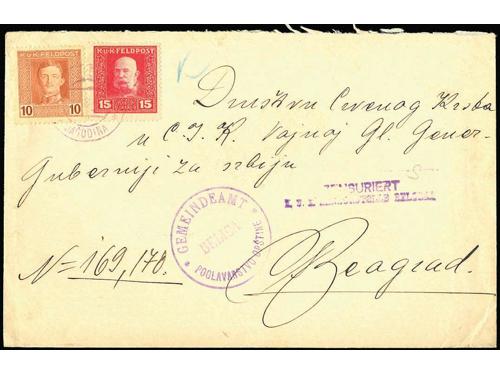 K.u.K. FELDPOST
10 10
K.u.K. FELDPOST
15 15
JAGODINA
Društvu Crvenog Krsta
u C. I. K. Vojnoj Gl. Gener-
Guberniji za srbiju
ZENSURIERT
GEMEINDEAMT
BELICA
POGLAVARSTVO OPŠTINE
№ = 169, 170.
Beograd.